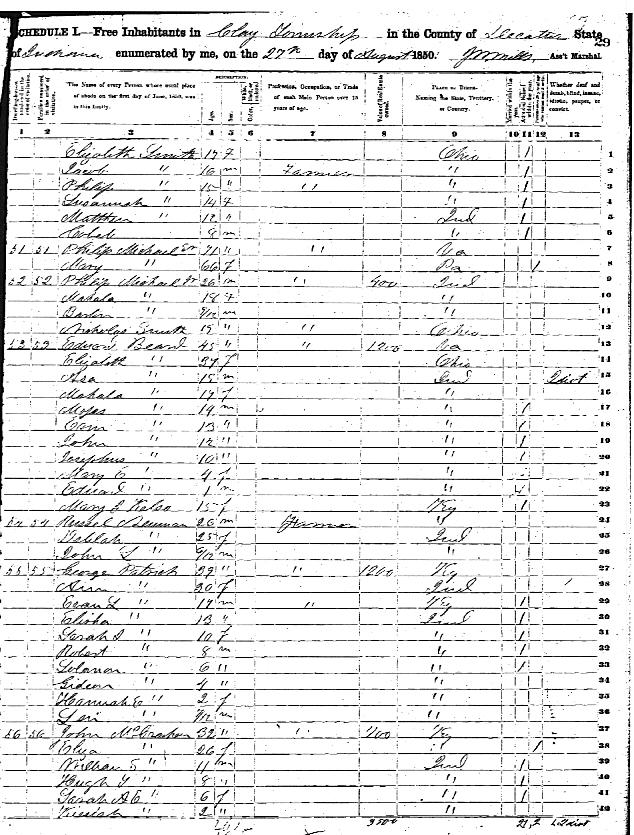 SCHEDULE I.—Free Inhabitants in Clay Township in the County of Decatur State
29
of Indiana enumerated by me, on the 27th day of August 1850. Ass't Marshal.
DESCRIPTION.
The Name of every Person whose usual place of abode on the first day of June, 1850, was in this family.
Age. Sex.
Profession, Occupation, or Trade of each Male Person over 15 years of age.
PLACE OF BIRTH. Naming the State, Territory, or Country.
Whether deaf and dumb, blind, insane, idiotic, pauper, or convict.
1 2 3 4 5 6 7 8 9 10 11 12 13
Elizabeth Smith 17 f Ohio 1 1
Jacob " 16 m Farmer " 1 2
Philip " 15 " " " 1 3
Susannah " 14 f " 1 4
Matthew " 12 " Ind 1 5
" 8 m " 1 6
51 51 Philip Michael Sr 71 " " Va 7
Mary " 66 f Pa 1 8
52 52 Philip Michael Jr 26 m " 400 Ind 9
Mahala " 18 f " 10
" 9/12 m " 11
Nicholas Smith 19 " " Ohio 12
53 53 Edward Beard 45 " " 1200 Va 13
Elizabeth " 37 f Ohio 14
Asa " 18 m Ind Idiot 15
Mahala " 17 f " 16
Moses " 14 m " 1 17
" 13 " " 1 18
John " 12 " " 1 19
Josephus " 10 " " 1 20
Mary E " 4 f " 21
Edward " 1 m " 22
Mary 15 f Ky 1 23
54 54 Russel 26 m Farmer " 24
Delilah " 25 f Ind 25
John L " 9/12 m " 26
55 55 George Patrick 39 " " 1200 Ky 27
Ann " 30 f Ind 28
Evan L " 17 m " Ky 1 29
Elisha " 13 " Ind 1 30
Sarah " 10 f " 1 31
Robert " 8 m " 1 32
Solomon " 6 " " 1 33
Gideon " 4 " " 34
Hannah E " 2 f " 35
Levi " 9/12 m " 36
56 56 John McCrakin 32 " " 700 Ky 37
" 26 f " 1 38
William S " 11 m Ind 1 39
Hugh Y " 8 " " 1 40
Sarah A E " 6 f " 1 41
" 2 " " 42
3500 21,2 1 Idiot